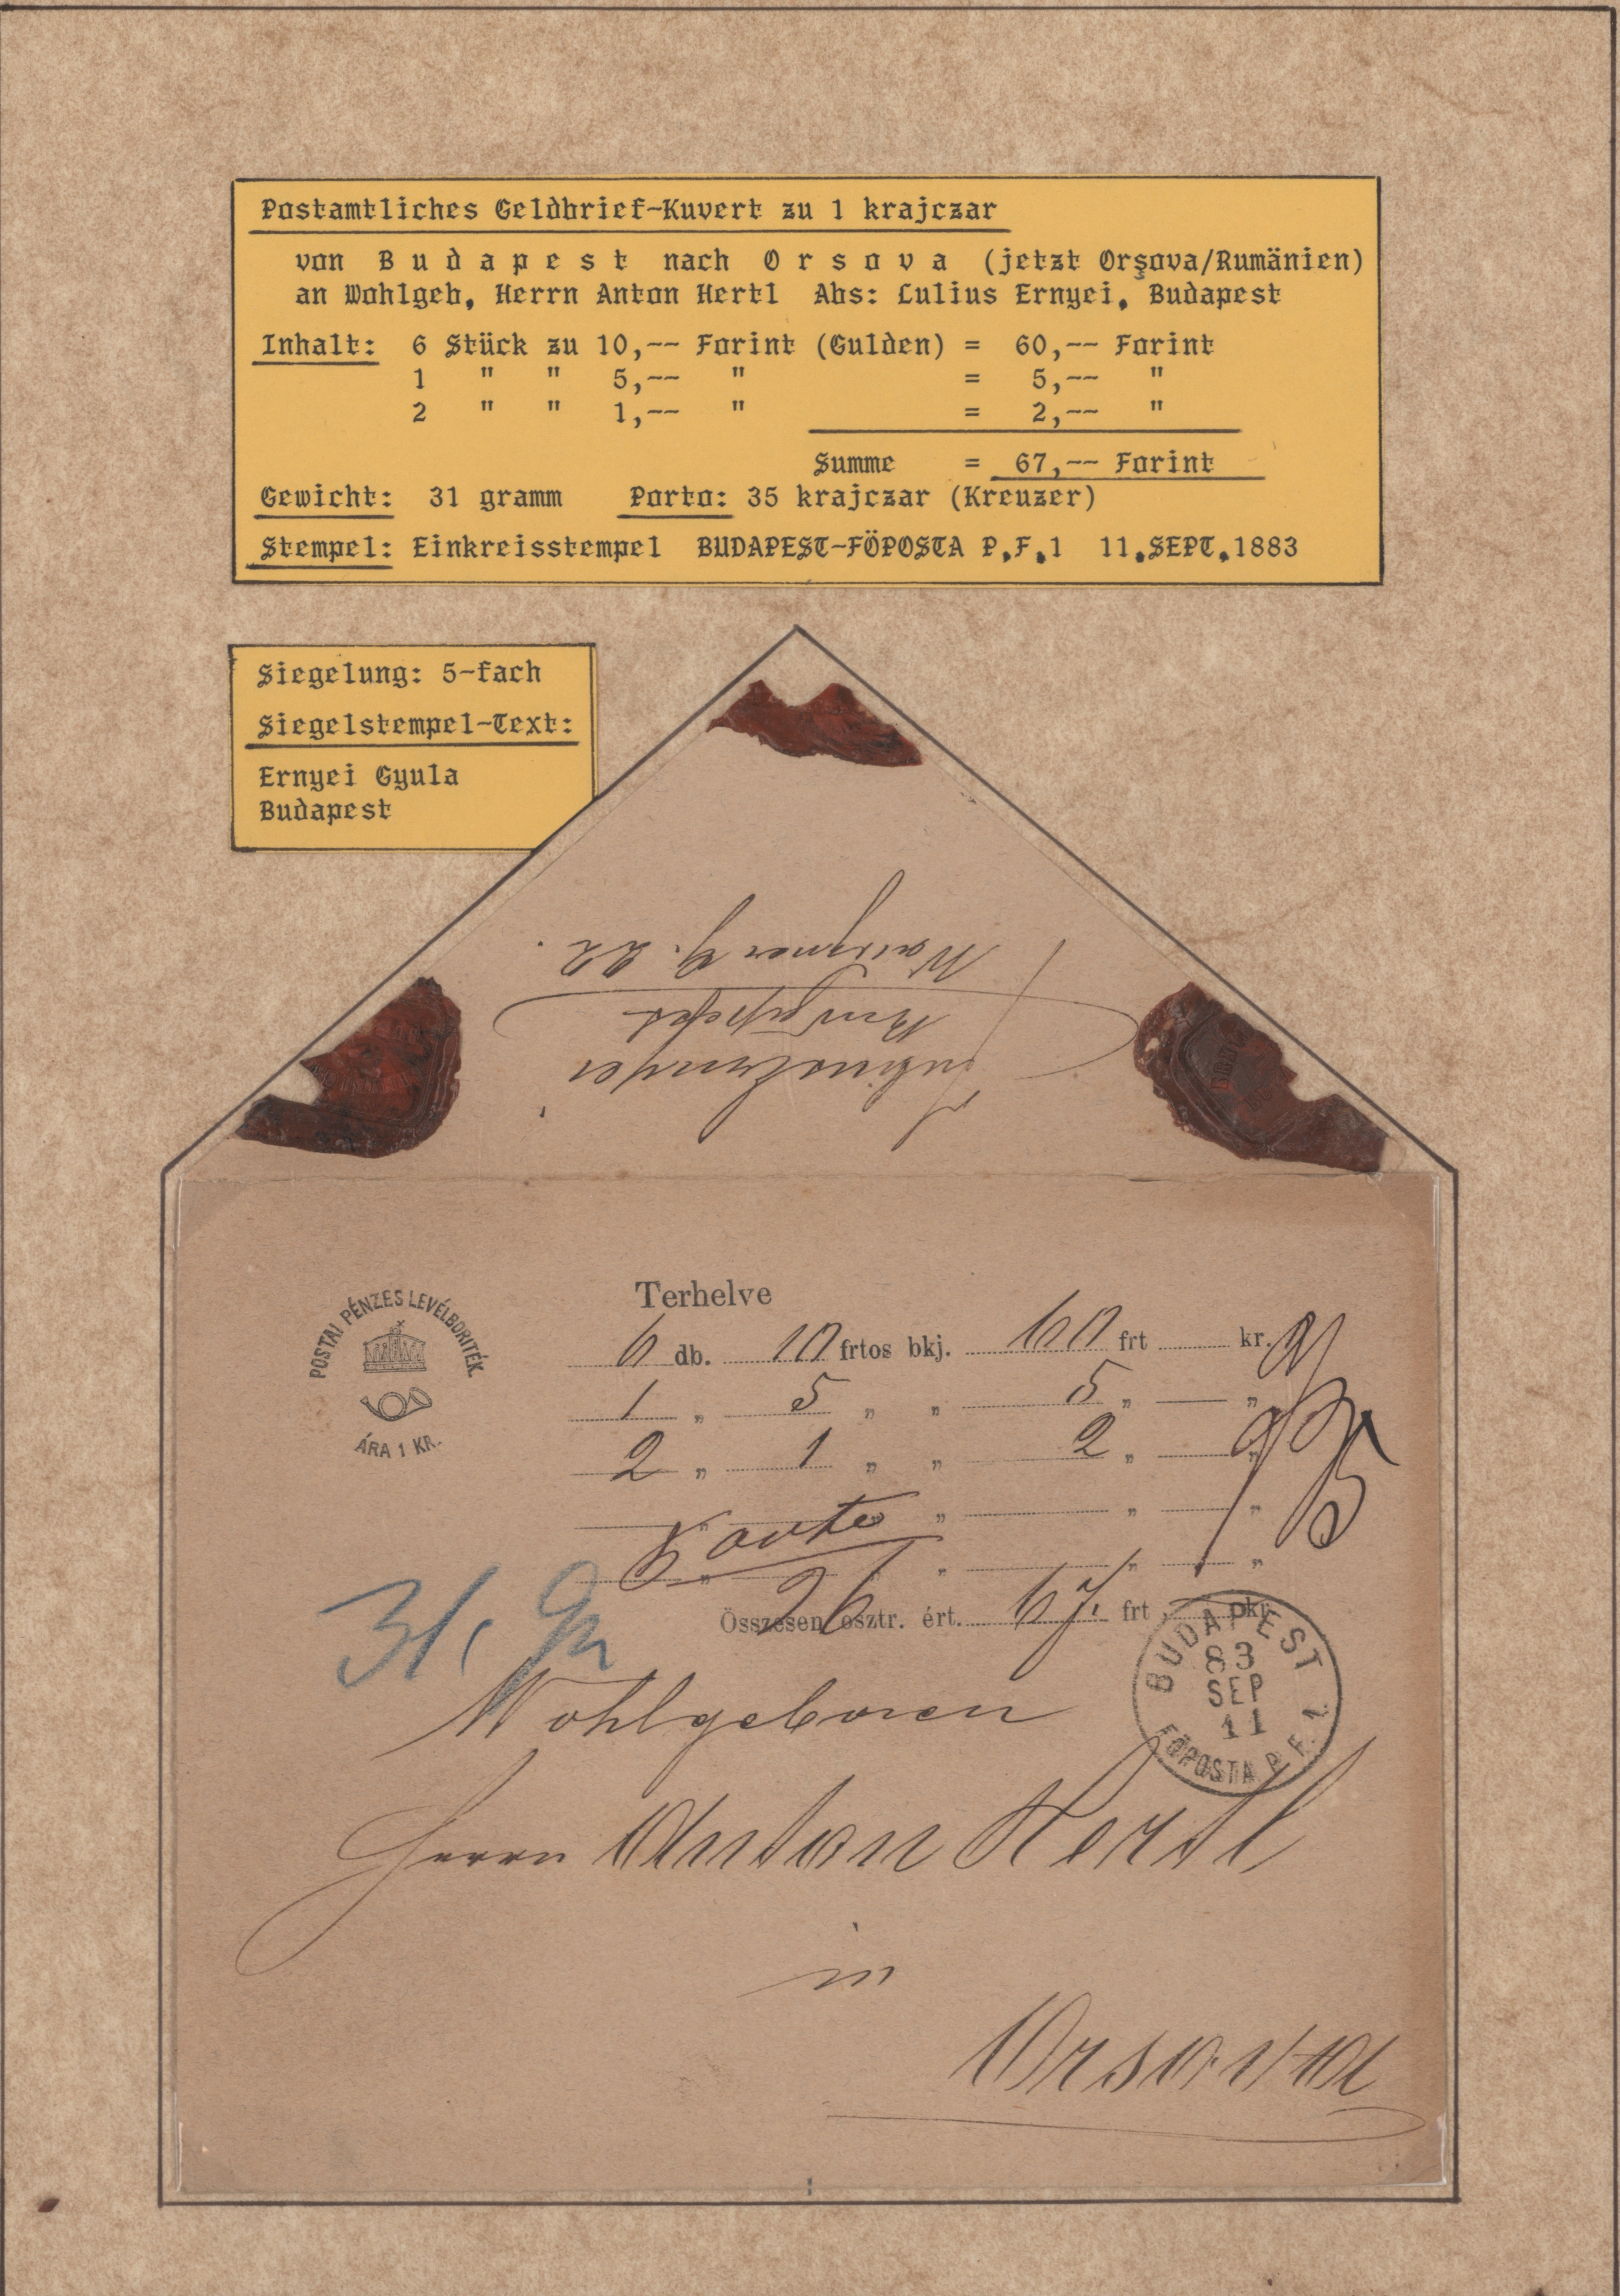 Postamtliches Geldbrief-Kuvert zu 1 krajczar
von Budapest nach Orsova (jetzt Orşova/Rumänien)
an Wohlgeb, Herrn Anton Hertl Abs: Lulius Ernyei, Budapest
Inhalt: 6 Stück zu 10,-- Forint (Gulden) = 60,-- Forint
1 " " 5,-- " = 5,-- "
2 " " 1,-- " = 2,-- "
Summe = 67,-- Forint
Gewicht: 31 gramm Porto: 35 krajczar (Kreuzer)
Stempel: Einkreisstempel BUDAPEST-FÖPOSTA P.F.1 11.SEPT.1883
Siegelung: 5-fach
Siegelstempel-Text:
Ernyei Gyula
Budapest
Julius Ernyei
Budapest
Waizner g. 22.
POSTAI PÉNZES LEVÉLBORITÉK.
ÁRA 1 KR.
Terhelve
6 db. 10 frtos bkj. 60 frt kr.
1 „ 5 „ „ 5 „ „
2 „ 1 „ „ 2 „ „
„ „ „ „
„ „ „ „
Összesen osztr. ért. 67. frt pkr
31. Gr
BUDAPEST
83
SEP
11
FŐPOSTA P. F. 1
Wohlgeboren
Herrn Anton Hertl
in
Orsova